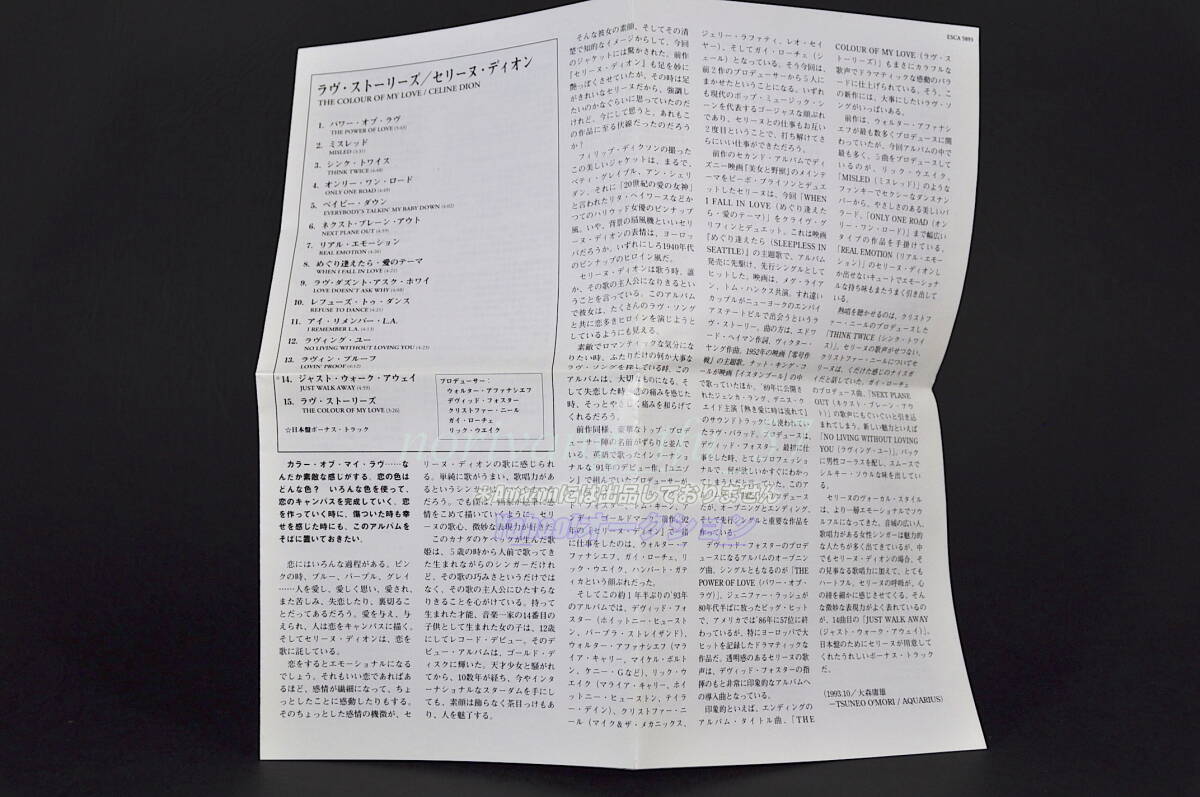 ESCA 5893
ラヴ・ストーリーズ／セリーヌ・ディオン
THE COLOUR OF MY LOVE / CELINE DION
1. パワー・オブ・ラヴ
THE POWER OF LOVE
2. ミスレッド
MISLED
3. シンク・トワイス
THINK TWICE
4. オンリー・ワン・ロード
ONLY ONE ROAD
5. ベイビー・ダウン
EVERYBODY'S TALKIN' MY BABY DOWN
6. ネクスト・プレーン・アウト
NEXT PLANE OUT
7. リアル・エモーション
REAL EMOTION
8. めぐり逢えたら・愛のテーマ
WHEN I FALL IN LOVE
9. ラヴ・ダズント・アスク・ホワイ
LOVE DOESN'T ASK WHY
10. レフューズ・トゥ・ダンス
REFUSE TO DANCE
11. アイ・リメンバー・L.A.
I REMEMBER L.A.
12. ラヴィング・ユー
NO LIVING WITHOUT LOVING YOU
13. ラヴィン・プルーフ
LOVIN' PROOF
☆14. ジャスト・ウォーク・アウェイ
JUST WALK AWAY
15. ラヴ・ストーリーズ
THE COLOUR OF MY LOVE (3:26)
☆日本盤ボーナス・トラック
プロデューサー：
ウォルター・アファナシエフ
デヴィッド・フォスター
クリストファー・ニール
ガイ・ローチェ
リック・ウエイク
カラー・オブ・マイ・ラヴ……な
んだか素敵な感じがする。恋の色は
どんな色？ いろんな色を使って、
恋のキャンパスを完成していく。恋
を作っていく時に、傷ついた時も幸
せを感じた時にも、このアルバムを
そばに置いておきたい。
恋にはいろんな過程がある。ピン
クの時、ブルー、パープル、グレイ
……人を愛し、愛しく思い、愛され、
また苦しみ、失恋したり、裏切るこ
とだってあるだろう。愛を与え、与
えられ、人は恋をキャンバスに描く。
そしてセリーヌ・ディオンは、恋を
歌に託している。
恋をするとエモーショナルになる
でしょう。それもいい恋であればあ
るほど、感情が繊細になって、ちょ
っとしたことに感動したりもする。
そのちょっとした感情の機微が、セ
リーヌ・ディオンの歌に感じられ
る。単純に歌がうまい、歌唱力があ
るというシン
だろう。でも僕は、画家が絵筆に感
情をこめて描いていくように、セリ
ーヌの歌心、微妙な表現力が好きだ。
このカナダのケベックが生んだ歌
姫は、5歳の時から人前で歌ってき
た生まれながらのシンガーだけれ
ど、その歌の巧みさというだけでは
なく、その歌の主人公にひたすらな
りきることを心がけている。持って
生まれた才能、音楽一家の14番目の
子供として生まれた女の子は、12歳
にしてレコード・デビュー。そのデ
ビュー・アルバムは、ゴールド・デ
ィスクに輝いた。天才少女と騒がれ
てから、10数年が経ち、今やインタ
ーナショナルなスターダムを手にし
ても、素顔は飾らなく茶目っけもあ
り、人を魅了する。
そんな彼女の素顔、そしてその清
楚で知的なイメージからして、今回
のジャケットには驚かされた。前作
『セリーヌ・ディオン』も足を妙に
艶っぽくさせていたが、その時は足
がきれいなセリーヌだから、強調し
たいのかなぐらいに思っていたのだ
けれど、今にして思うと、あれもこ
の作品に至る伏線だったのだろう
か？
フィリップ・ディクソンの撮った
この美しいジャケットは、まるで、
ベティ・グレイブル、アン・シェリ
ダン、それに「20世紀の愛の女神」
と言われたリタ・ヘイワースなどか
つてのハリウッド女優のピンナップ
風。いや、背景の扇風機といいセリ
ーヌ・ディオンの表情は、ヨーロッ
パだろうか。いずれにしろ1940年代
のピンナップのヒロイン風だ。
セリーヌ・ディオンは歌う時、誰
か、その歌の主人公になりきるとい
うことを言っている。このアルバム
で彼女は、たくさんのラヴ・ソング
と共に恋多きヒロインを演じようと
しているようにも見える。
素敵でロマンチックな気分にな
りたい時、ふたりだけの何か大事な
ラヴ・ソングを探している時、この
アルバムは、大切なものになる。そ
して失恋した時、恋の痛みを感じた
時、そっとやさしく痛みを和らげて
くれるだろう。
前作同様、豪華なトップ・プロデ
ューサー陣の名前がずらりと並んで
いる。英語で歌ったインターナショ
ナルな'91年のデビュー作、『ユニゾ
ン』で組んでいたプロデューサーが
年の『セリーヌ・ディオン』で新た
に仕事をしたのは、ウォルター・ア
ファナシエフ、ガイ・ローチェ、リ
ック・ウエイク、ハンバート・ガテ
ィカという顔ぶれだった。
そしてこの約1年半ぶりの'93年
のアルバムでは、デヴィッド・フォ
スター（ホイットニー・ヒュースト
ン、バーブラ・ストレイザンド）、
ウォルター・アファナシエフ（マラ
イア・キャリー、マイケル・ボルト
ン、ケニー・Gなど）、リック・ウ
エイク（マライア・キャリー、ホイ
ットニー・ヒューストン、テイラ
ー・デイン）、クリストファー・ニ
ール（マイク＆ザ・メカニックス、
ジェリー・ラファティ、レオ・セイ
ヤー）、そしてガイ・ローチェ（シ
ェール）となっている。そう今回は、
前2作のプロデューサーから5人に
まかせたということになる。いずれ
も現代のポップ・ミュージック・シ
ーンを代表するゴージャスな顔ぶれ
であり、セリーヌとの仕事もお互い
2度目ということで、打ち解けてさ
らにいい仕事ができただろう。
前作のセカンド・アルバムでディ
ズニー映画『美女と野獣』のメインテ
ーマをピーボ・ブライソンとデュエ
ットしたセリーヌは、今回「WHEN
I FALL IN LOVE（めぐり逢えた
ら・愛のテーマ）」をクライヴ・グ
リフィンとデュエット。これは映画
『めぐり逢えたら（SLEEPLESS IN
SEATTLE）』の主題歌で、アルバム
発売に先駆け、先行シングルとして
ヒットした。映画は、メグ・ライア
ン、トム・ハンクス共演。すれ違い
カップルがニューヨークのエンパイ
アステートビルで出会うというラ
ヴ・ストーリー。曲の方は、エドワ
ード・ヘイマン作詞、ヴィクター・
ヤング作曲。1952年の映画『零号作
戦』の主題歌。ナット・キング・コ
ールが映画『イスタンブール』の中
で歌っていたほか、'89年に公開さ
れたジェシカ・ラング、デニス・ク
エイド主演『熱き愛に時は流れて』
のサウンドトラックにも使われてい
たラヴ・バラッド。プロデュースは、
デヴィッド・フォスター。最初に仕
事をした時、とてもプロフェッショ
ナルで、何が欲しいかすぐにわかっ
てしまう人だと言っていた。この
が、オープニングとエンディング、
そして先行シングルと重要な作品を
デヴィッド・フォスターのプロデ
ュースになるアルバムのオープニン
グ曲、シングルともなるのが「THE
POWER OF LOVE（パワー・オブ・
ラヴ）」。ジェニファー・ラッシュが
80年代半ばに放ったビッグ・ヒット
で、アメリカでは'86年に57位に終
わっているが、特にヨーロッパで大
ヒットを記録したドラマティックな
作品だ。透明感のあるセリーヌの歌
声は、デヴィッド・フォスターの指
揮のもと非常に印象的なアルバムへ
の導入曲となっている。
印象的といえば、エンディングの
アルバム・タイトル曲、「THE
COLOUR OF MY LOVE（ラヴ・ス
トーリーズ）」もまさにカラフルな
歌声でドラマティックな感動のバラ
ードに仕上げられている。そう、こ
の新作には、大事にしたいラヴ・ソ
ングがいっぱいある。
前作は、ウォルター・アファナシ
エフが最も数多くプロデュースに関
わっていたが、今回アルバムの中で
最も多く、5曲をプロデュースして
いるのが、リック・ウエイク。
「MISLED（ミスレッド）」のような
ファンキーでセクシーなダンスナン
バーから、やさしさのある美しいバ
ラード、「ONLY ONE ROAD（オン
リー・ワン・ロード）」まで幅広い
タイプの作品を手掛けている。
「REAL EMOTION（リアル・エモー
ション）」のセリーヌ・ディオンし
か出せないキュートでエモーショナ
ルな持ち味もまたうまく引き出して
いる。
熱唱を聴かせるのは、クリストフ
ァー・ニールのプロデュースした
「THINK TWICE（シンク・トワイ
ス）」。セリーヌの歌声がせつない。
クリストファー・ニールについてセ
リーヌは、くだけた感じのナイスガ
イだと話していた。ガイ・ローチェ
のプロデュース曲、「NEXT PLANE
OUT（ネクスト・プレーン・アウ
ト）」の歌声にもぐいぐいと引き込
まれてしまう。新しい魅力といえば
「NO LIVING WITHOUT LOVING
YOU（ラヴィング・ユー）」。バック
に男性コーラスを配し、スムースで
シルキー・ソウルな味を出してい
る。
セリーヌのヴォーカル・スタイル
は、より一層エモーショナルでソウ
ルフルになってきた。音域の広い人、
歌唱力がある女性シンガーは魅力的
な人たちが多く出てきているが、中
でもセリーヌ・ディオンの場合、そ
の見事なる歌唱力に加えて、とても
ハートフル。セリーヌの呼吸が、心
の綾を細かに感じさせてくる。そん
な微妙な表現力がよく表れているの
が、14曲目の「JUST WALK AWAY
（ジャスト・ウォーク・アウェイ）」。
日本盤のためにセリーヌが用意して
くれたうれしいボーナス・トラック
だ。
（1993.10／大森庸雄
—TSUNEO O'MORI / AQUARIUS）
※Amazonには出品しておりません